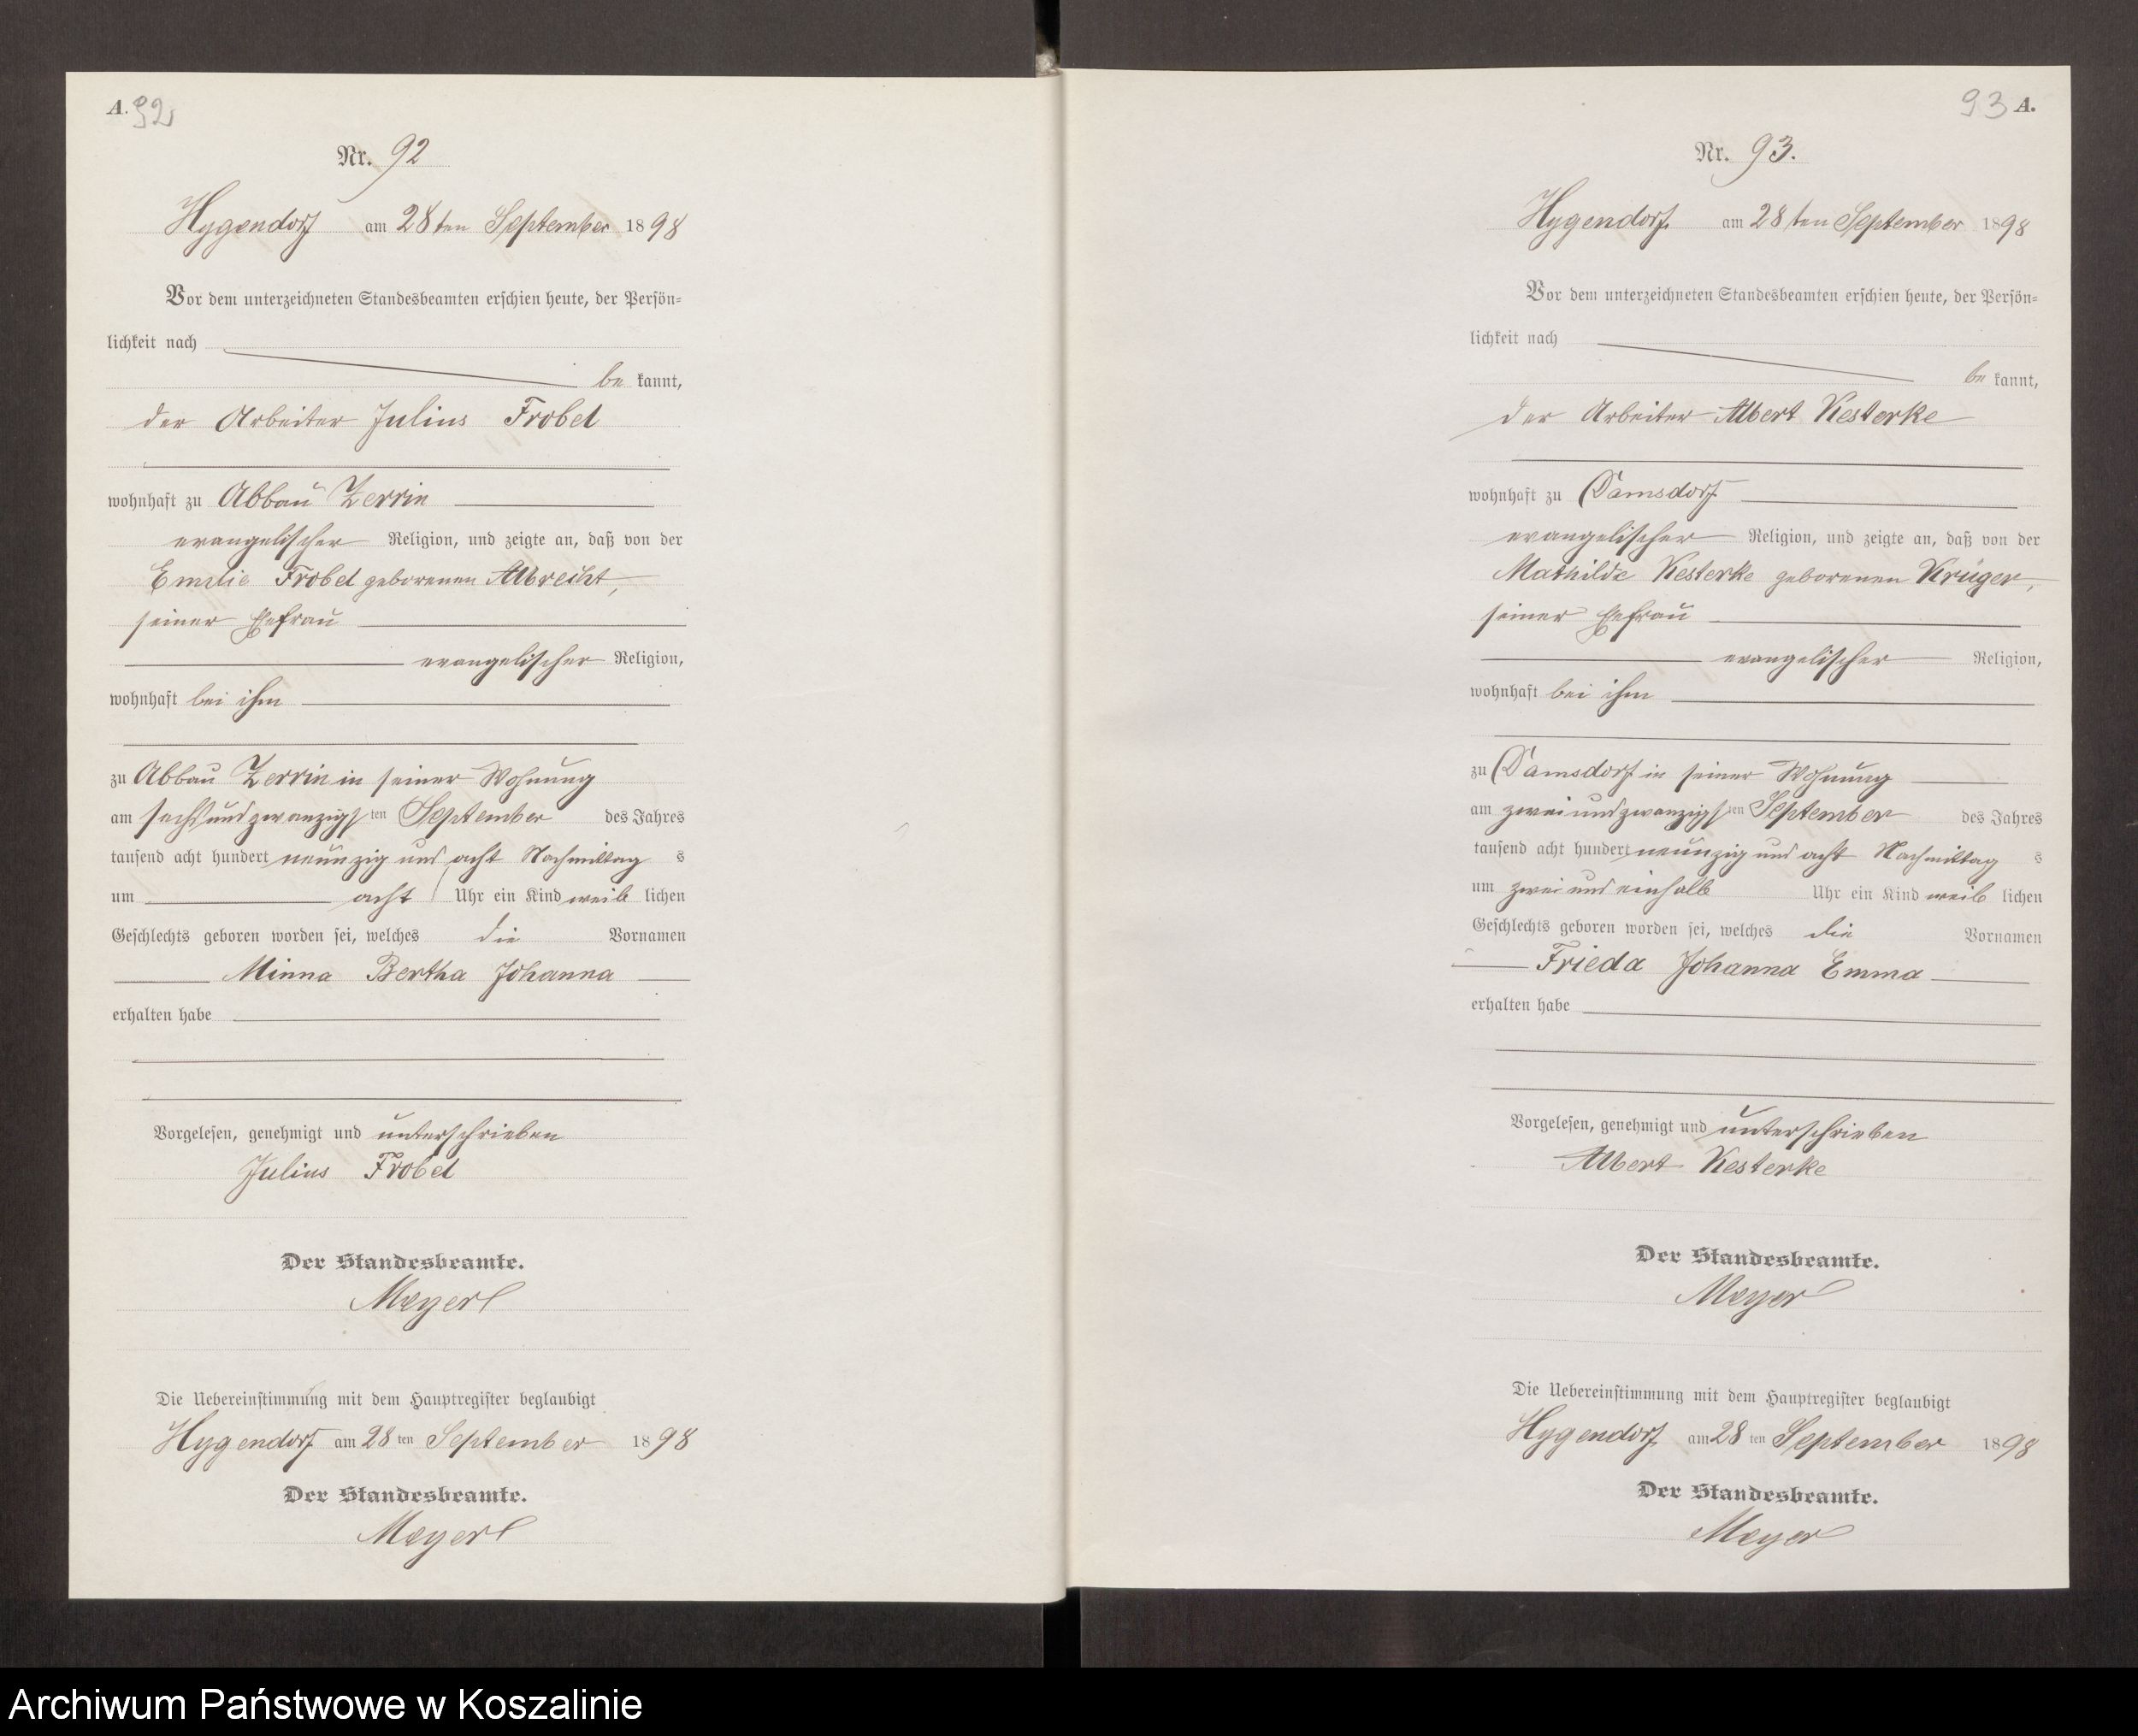 A. 92
Nr. 92
Hygendorf am 28ten September 1898
Vor dem unterzeichneten Standesbeamten erschien heute, der Persön-
lichkeit nach
be kannt,
der Arbeiter Julius Frobel
wohnhaft zu Abbau Zerrin
evangelischer Religion, und zeigte an, daß von der
Emilie Frobel geborenen Albrecht,
seiner Ehefrau
evangelischer Religion,
wohnhaft bei ihm
zu Abbau Zerrin in seiner Wohnung
am sechsundzwanzigsten September des Jahres
tausend acht hundert neunzig und acht Nachmittag s
um acht Uhr ein Kind weib lichen
Geschlechts geboren worden sei, welches die Vornamen
Minna Bertha Johanna
erhalten habe
Vorgelesen, genehmigt und unterschrieben
Julius Frobel
Der Standesbeamte.
Meyer
Die Uebereinstimmung mit dem Hauptregister beglaubigt
Hygendorf am 28ten September 1898
Der Standesbeamte.
Meyer
93 A.
Nr. 93.
Hygendorf am 28ten September 1898
Vor dem unterzeichneten Standesbeamten erschien heute, der Persön-
lichkeit nach
be kannt,
der Arbeiter Albert Kesterke
wohnhaft zu Damsdorf
evangelischer Religion, und zeigte an, daß von der
Mathilde Kesterke geborenen Krüger,
seiner Ehefrau
evangelischer Religion,
wohnhaft bei ihm
zu Damsdorf in seiner Wohnung
am zweiundzwanzigsten September des Jahres
tausend acht hundert neunzig und acht Nachmittag s
um zwei und einhalb Uhr ein Kind weib lichen
Geschlechts geboren worden sei, welches die Vornamen
Frieda Johanna Emma
erhalten habe
Vorgelesen, genehmigt und unterschrieben
Albert Kesterke
Der Standesbeamte.
Meyer
Die Uebereinstimmung mit dem Hauptregister beglaubigt
Hygendorf am 28ten September 1898
Der Standesbeamte.
Meyer
Archiwum Państwowe w Koszalinie